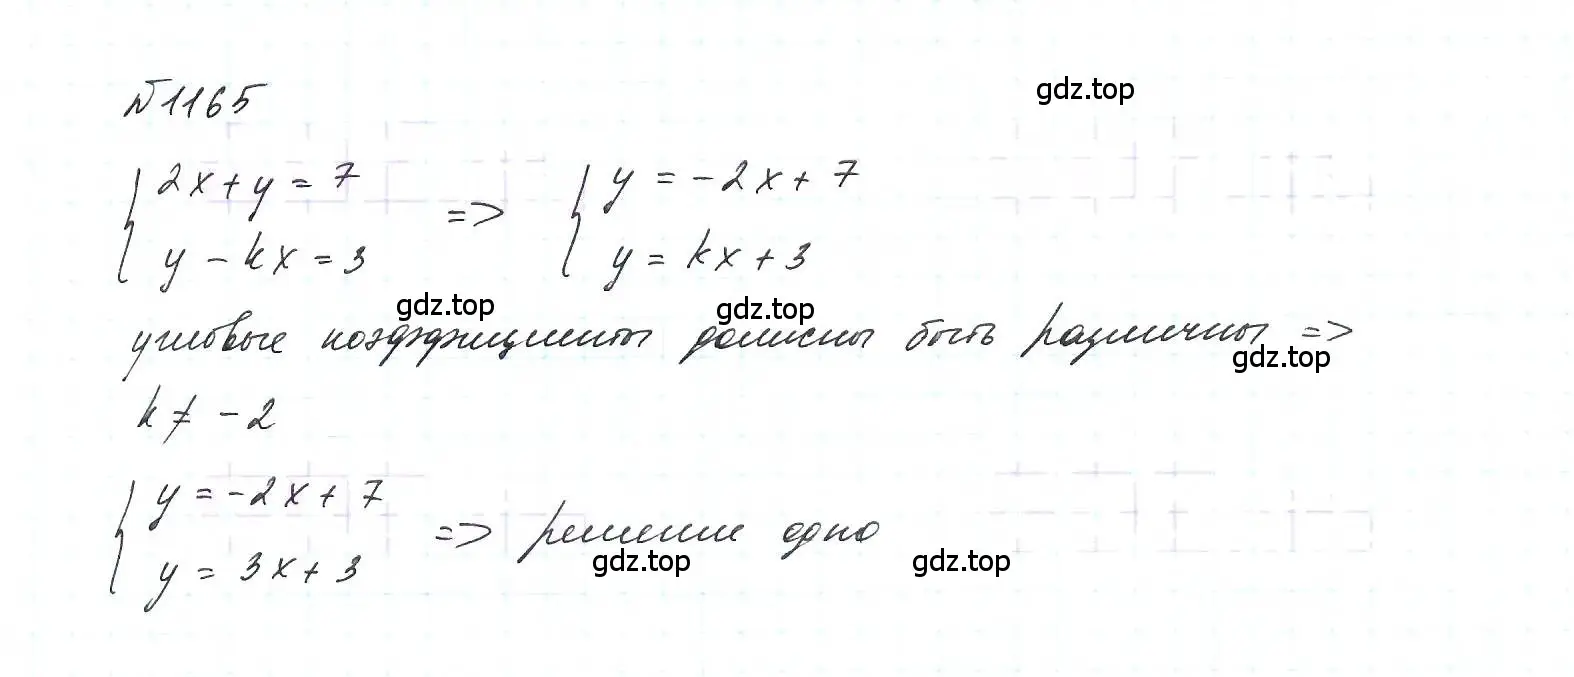 №1165
gdz.top
{ 2x + y = 7 => { y = -2x + 7
y - kx = 3 y = kx + 3
gdz.top gdz.top
угловые коэффициенты должны быть различны =>
gdz.top
k ≠ -2
{ y = -2x + 7 => решение одно
y = 3x + 3
gdz.top gdz.top